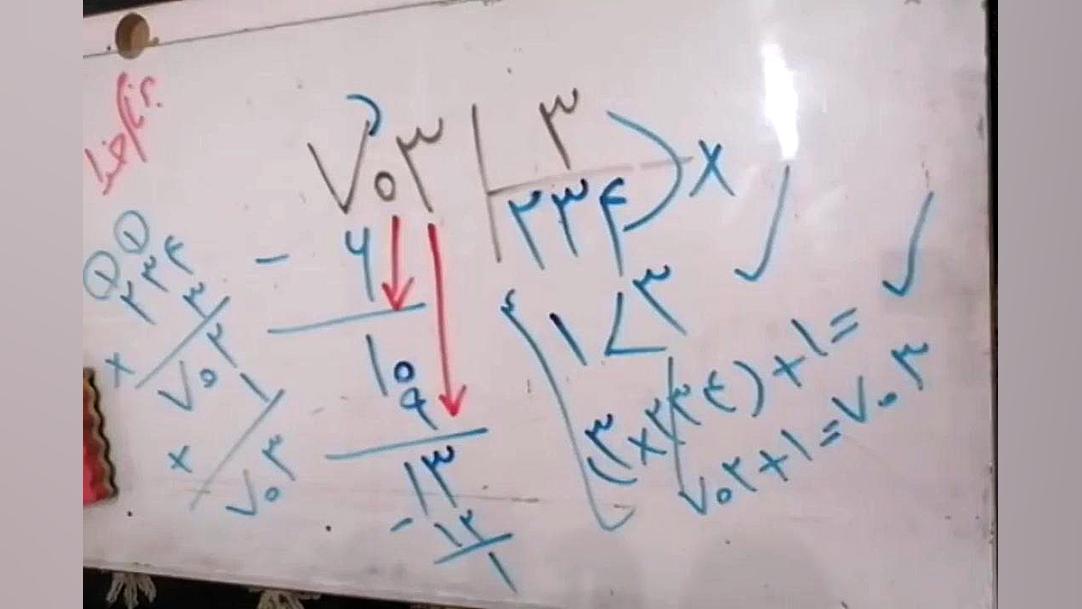 بنام خدا
۷۰۳ | ۳
۲۳۴ ×
- ۶
۱۰
۹
۱۳
- ۱۲
۱
۱ < ۳
(۳×۲۳۴)+۱=
۷۰۲+۱=۷۰۳
① ①
۲۳۴
× ۳
۷۰۲
× ۱
۷۰۳